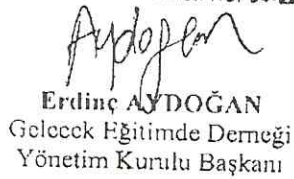 Aydoğan
Erdinç AYDOĞAN
Gelecek Eğitimde Derneği
Yönetim Kurulu Başkanı